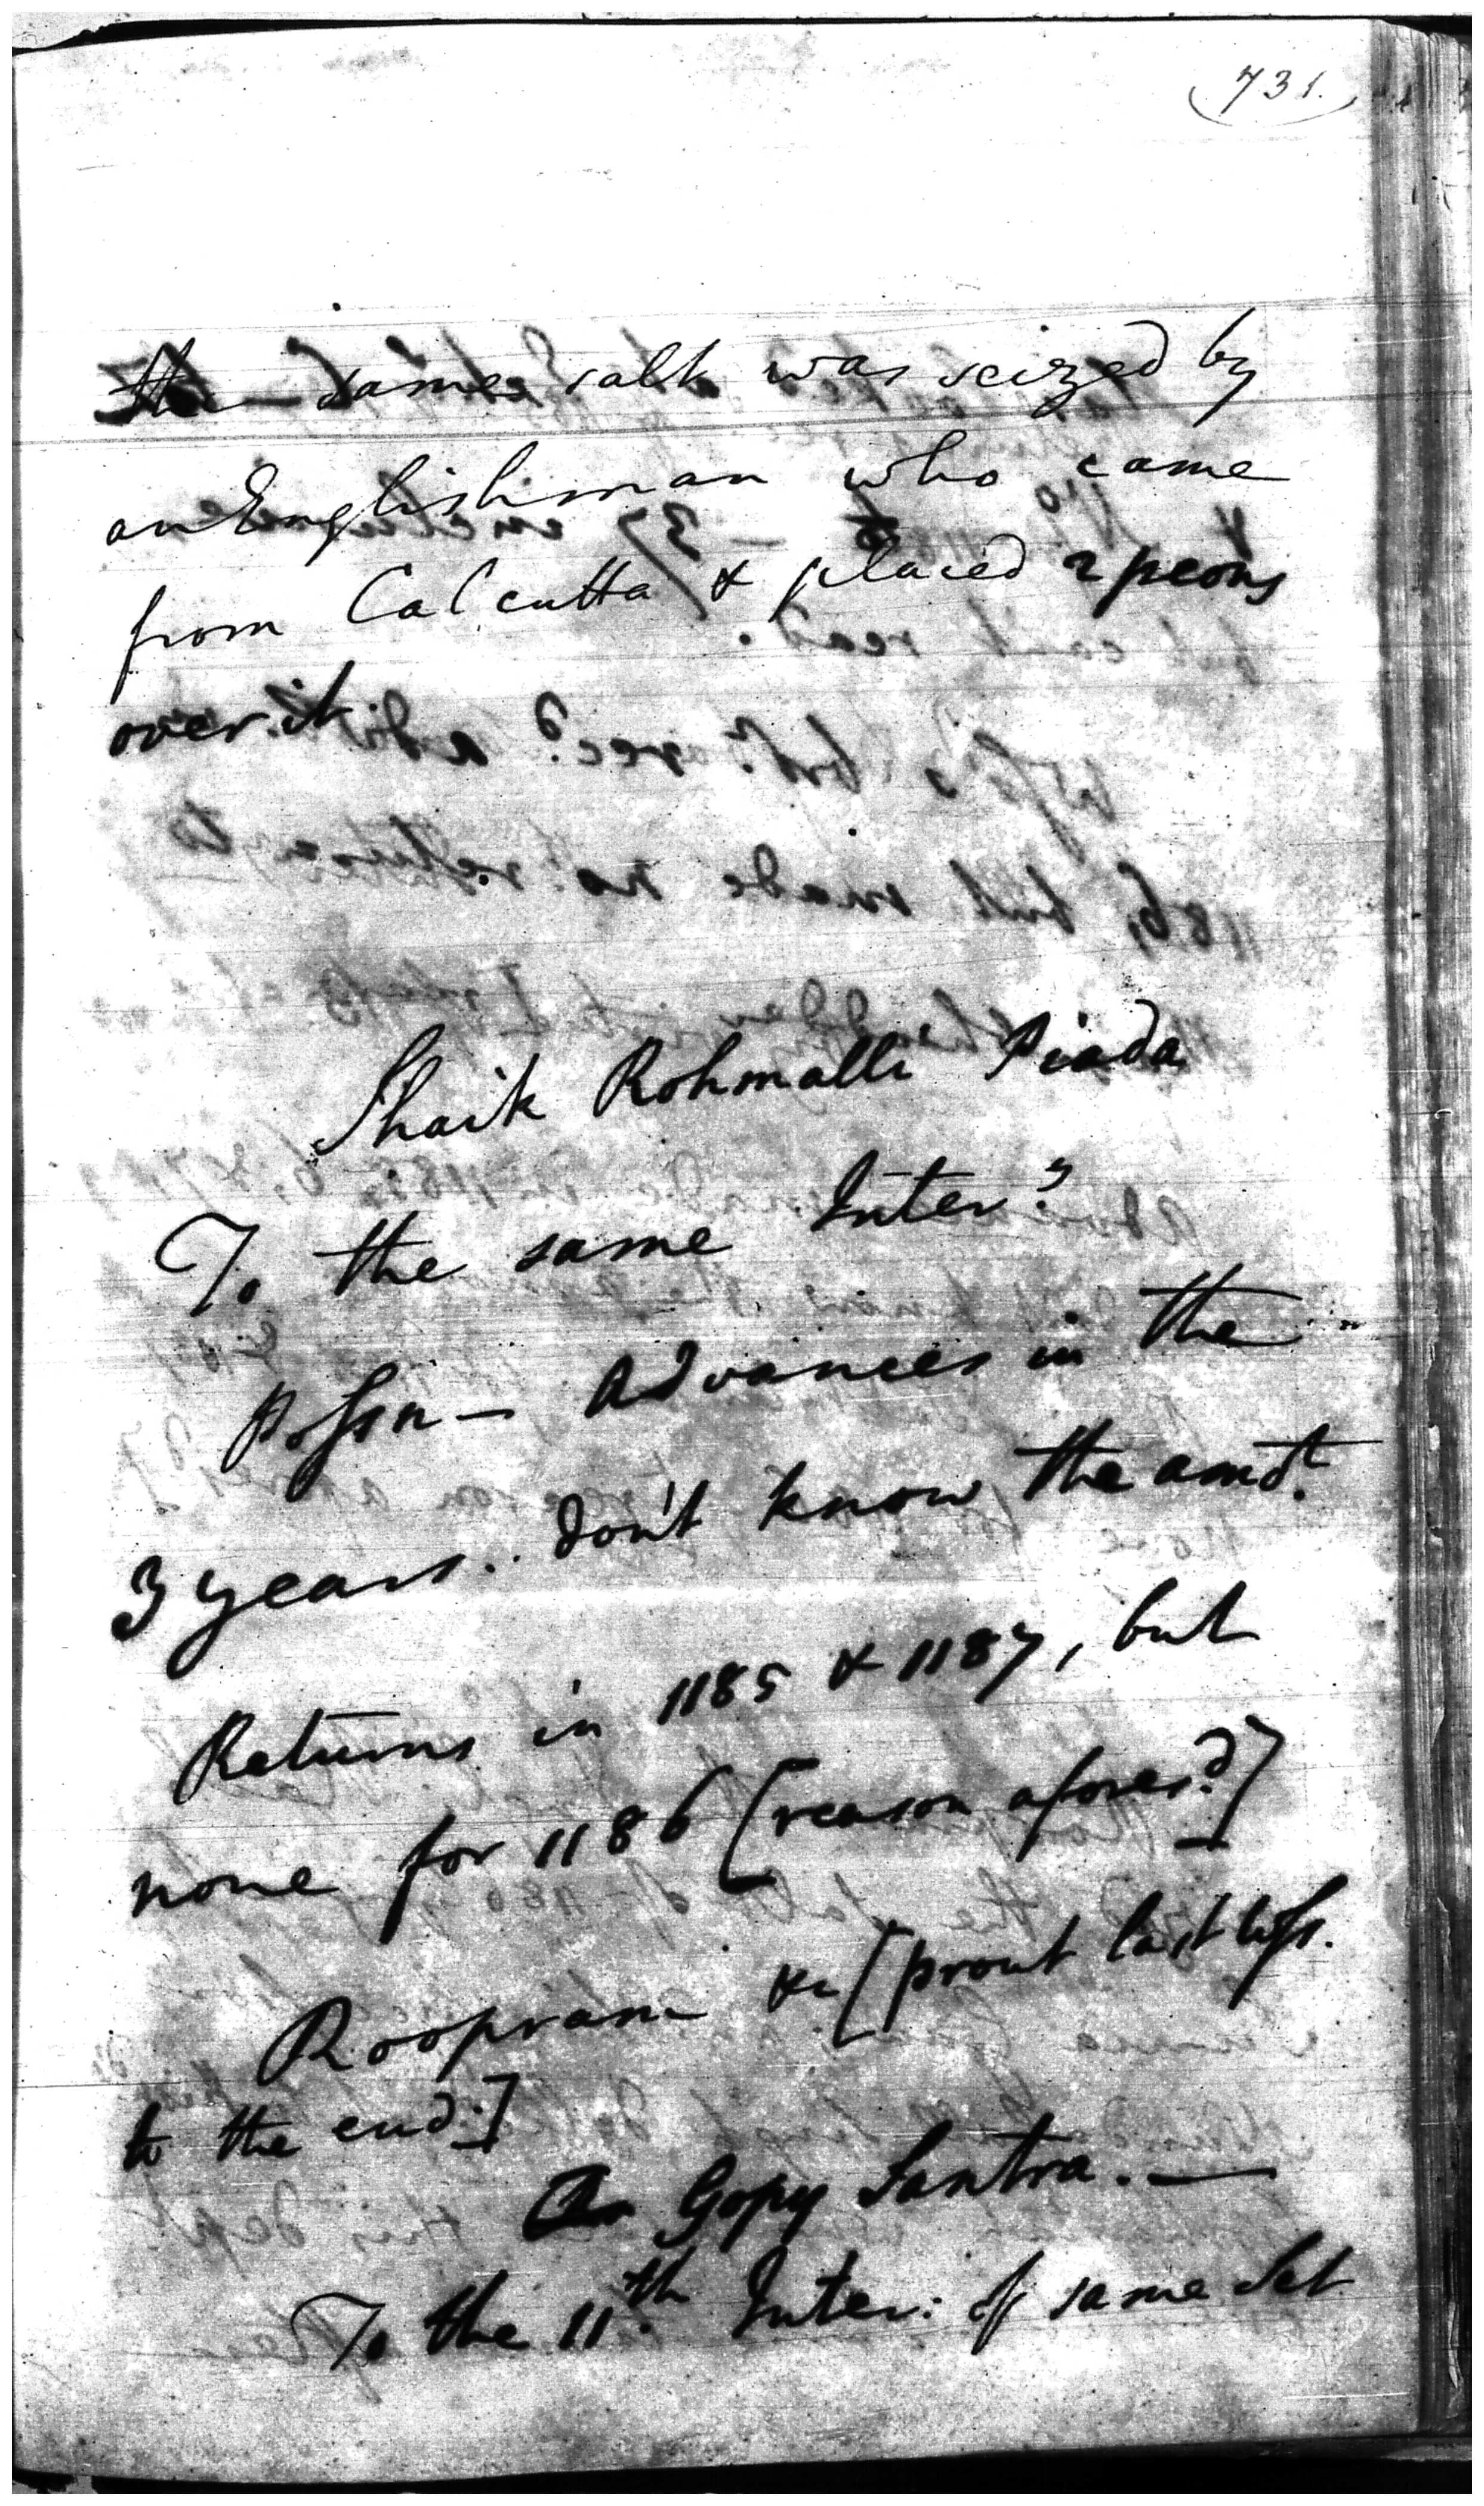 (731.)
the same salt was seized by
an Englishman who came
from Calcutta & placed 2 peons
over it
Shaik Rohmalli Piada
To the same Inter.y
Possn — Advances in the
3 years.. don't know the amot.
Returns in 1185 & 1187, but
none for 1186 [reason aforesd.]
Roopram &c [prout last wss.
to the end.]
Gopy Santra. —
To the 11th. Inter: of same Set